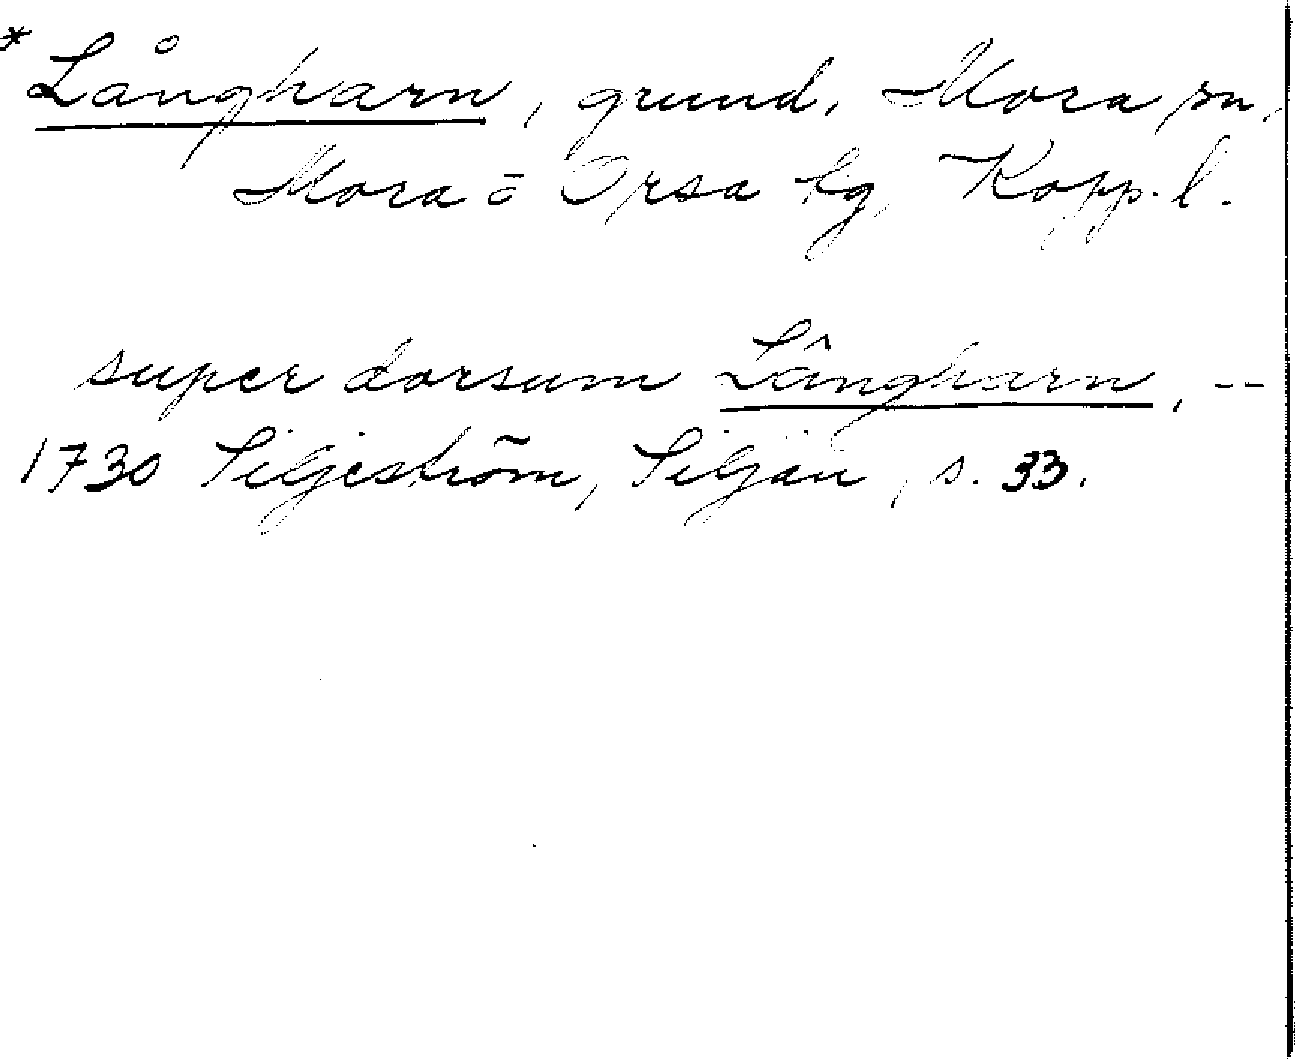 * Långharn, grund, Mora sn,
Mora o Orsa tg, Kopp. l.
super dorsum Lângharn, --
1730 Siljeström, Siljan, s. 33.